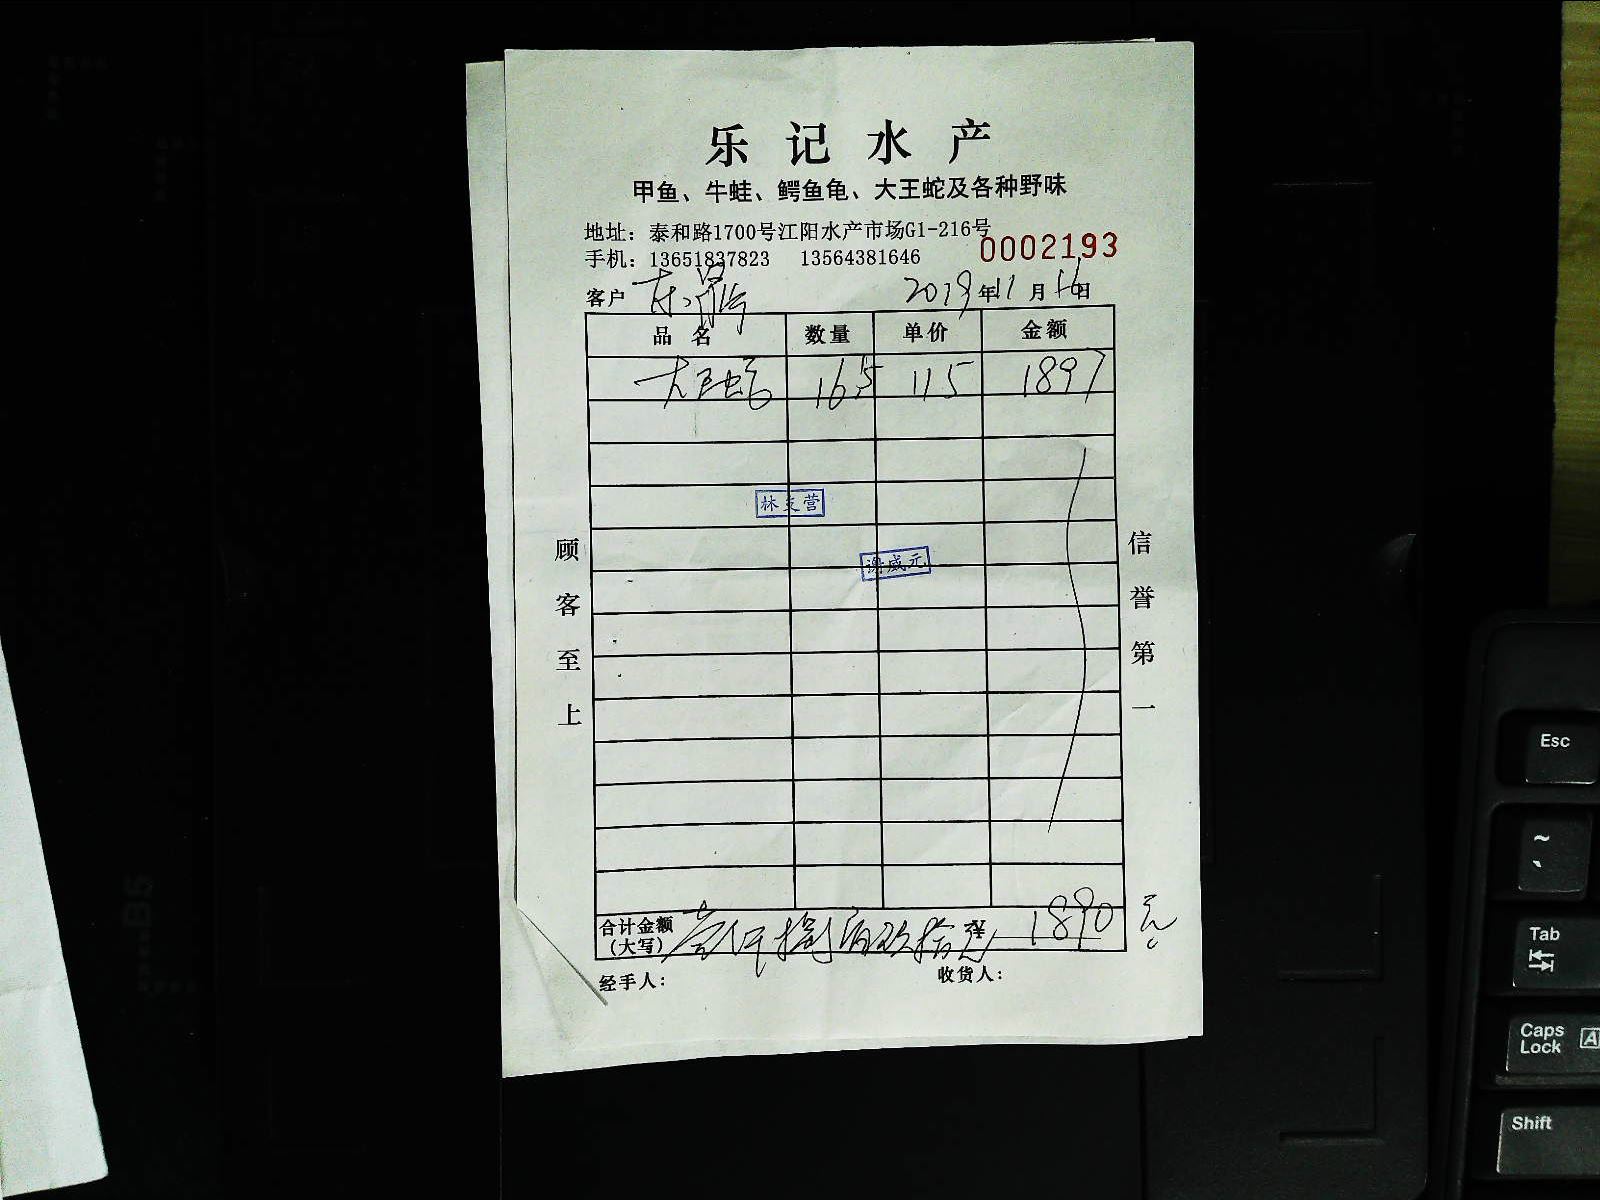 乐记水产
甲鱼、牛蛙、鳄鱼龟、大王蛇及各种野味
地址：泰和路1700号江阳水产市场G1-216号
手机：13651837823 13564381646
0002193
客户
2019年11月16日
品名 数量 单价 金额
大王蛇 16.5 115 1897
林支营
谢威元
顾客至上
信誉第一
合计金额
（大写） 壹仟捌佰玖拾 1890元
经手人： 收货人：
Esc
~
`
Tab
Caps Lock A
Shift
B5